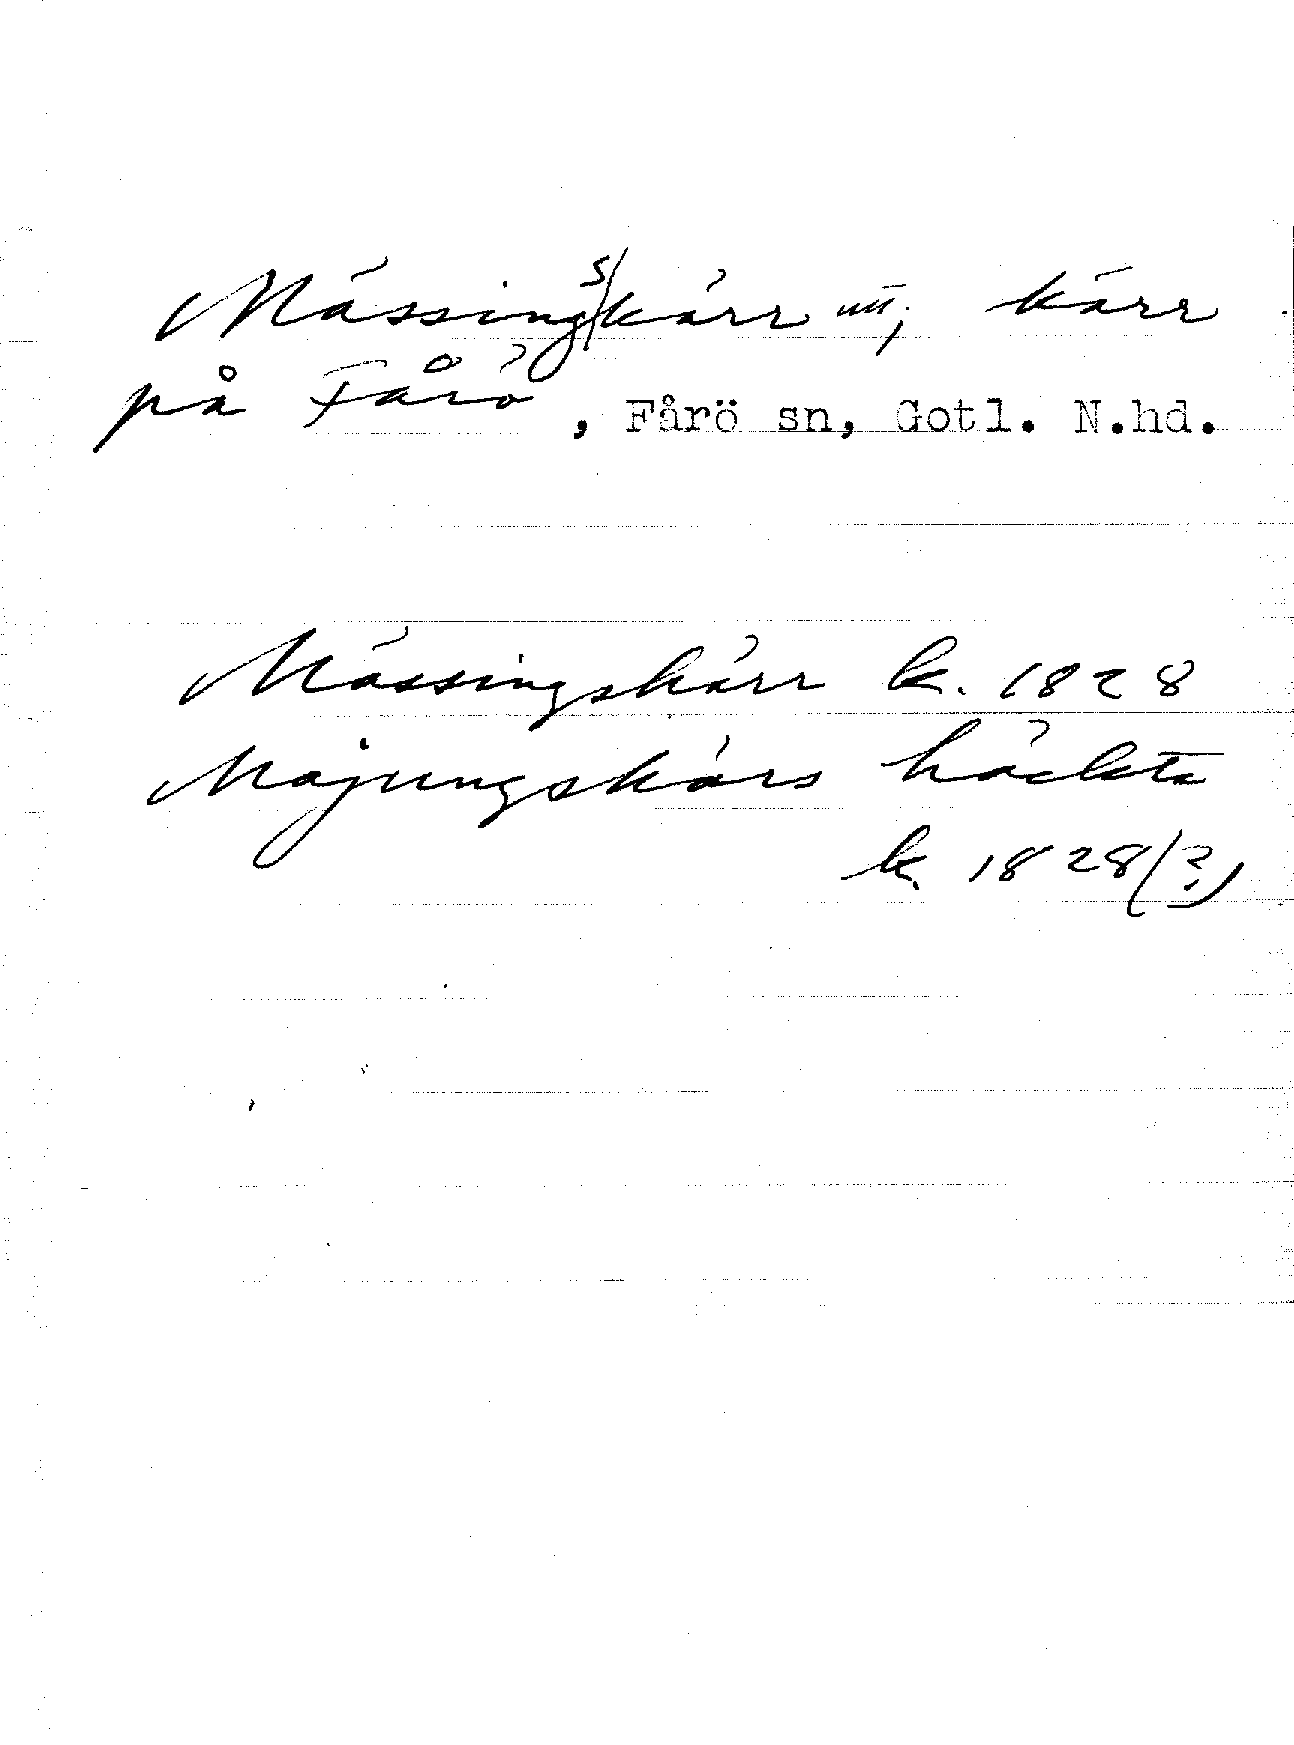 Mässingskärr nu, kärr
på Fårö, Fårö sn, Gotl. N.hd.
Mässingskärr k. 1828
Majungskärs häckta
k. 1828(?)